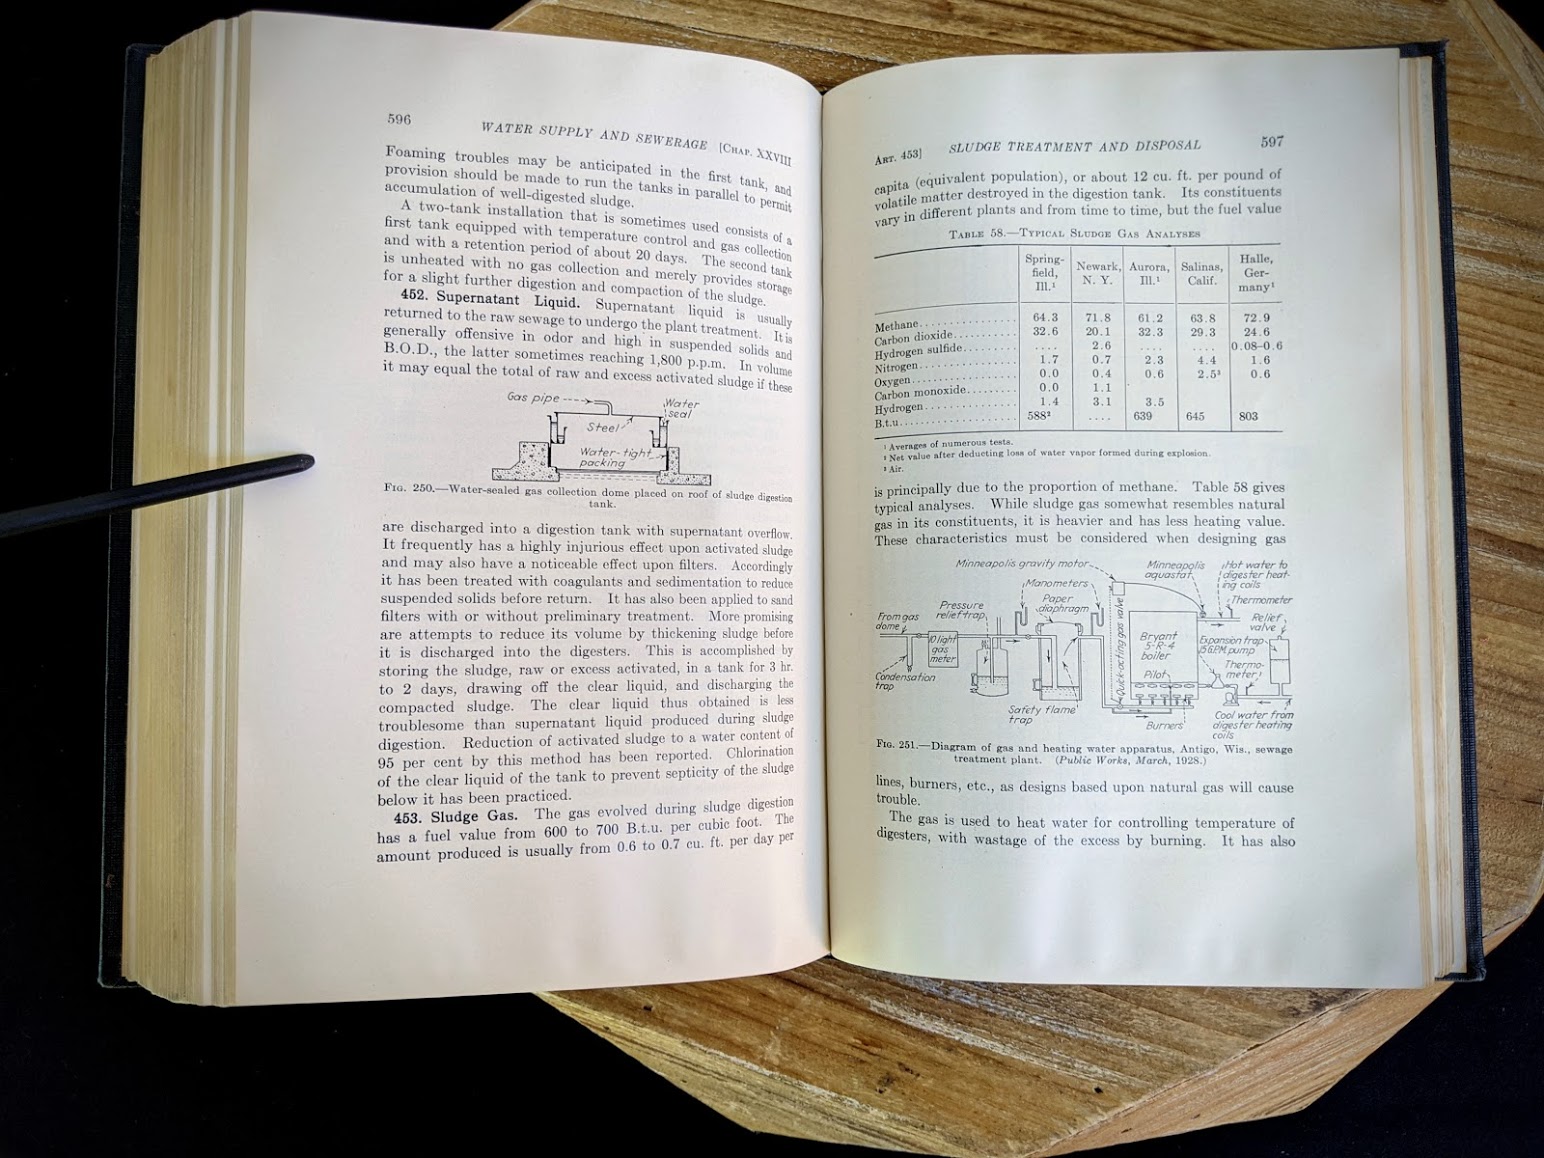 596
WATER SUPPLY AND SEWERAGE [CHAP. XXVIII
Foaming troubles may be anticipated in the first tank, and
provision should be made to run the tanks in parallel to permit
accumulation of well-digested sludge.
A two-tank installation that is sometimes used consists of a
first tank equipped with temperature control and gas collection
and with a retention period of about 20 days. The second tank
is unheated with no gas collection and merely provides storage
for a slight further digestion and compaction of the sludge.
452. Supernatant Liquid. Supernatant liquid is usually
returned to the raw sewage to undergo the plant treatment. It is
generally offensive in odor and high in suspended solids and
B.O.D., the latter sometimes reaching 1,800 p.p.m. In volume
it may equal the total of raw and excess activated sludge if these
Gas pipe
Water
seal
Steel
Water-tight
packing
FIG. 250.—Water-sealed gas collection dome placed on roof of sludge digestion
tank.
are discharged into a digestion tank with supernatant overflow.
It frequently has a highly injurious effect upon activated sludge
and may also have a noticeable effect upon filters. Accordingly
it has been treated with coagulants and sedimentation to reduce
suspended solids before return. It has also been applied to sand
filters with or without preliminary treatment. More promising
are attempts to reduce its volume by thickening sludge before
it is discharged into the digesters. This is accomplished by
storing the sludge, raw or excess activated, in a tank for 3 hr.
to 2 days, drawing off the clear liquid, and discharging the
compacted sludge. The clear liquid thus obtained is less
troublesome than supernatant liquid produced during sludge
digestion. Reduction of activated sludge to a water content of
95 per cent by this method has been reported. Chlorination
of the clear liquid of the tank to prevent septicity of the sludge
below it has been practiced.
453. Sludge Gas. The gas evolved during sludge digestion
has a fuel value from 600 to 700 B.t.u. per cubic foot. The
amount produced is usually from 0.6 to 0.7 cu. ft. per day per
ART. 453] SLUDGE TREATMENT AND DISPOSAL 597
capita (equivalent population), or about 12 cu. ft. per pound of
volatile matter destroyed in the digestion tank. Its constituents
vary in different plants and from time to time, but the fuel value
TABLE 58.—TYPICAL SLUDGE GAS ANALYSES
Spring-
field,
Ill.¹
Newark,
N. Y.
Aurora,
Ill.¹
Salinas,
Calif.
Halle,
Ger-
many¹
Methane 64.3 71.8 61.2 63.8 72.9
Carbon dioxide 32.6 20.1 32.3 29.3 24.6
Hydrogen sulfide .... 2.6 .... .... 0.08–0.6
Nitrogen 1.7 0.7 2.3 4.4 1.6
Oxygen 0.0 0.4 0.6 2.5³ 0.6
Carbon monoxide 0.0 1.1
Hydrogen 1.4 3.1 3.5
B.t.u. 588² .... 639 645 803
¹ Averages of numerous tests.
² Net value after deducting loss of water vapor formed during explosion.
³ Air.
is principally due to the proportion of methane. Table 58 gives
typical analyses. While sludge gas somewhat resembles natural
gas in its constituents, it is heavier and has less heating value.
These characteristics must be considered when designing gas
Minneapolis gravity motor
Minneapolis
aquastat
Hot water to
digester heat-
ing coils
Manometers
Thermometer
Pressure
relief trap
Paper
diaphragm
From gas
dome
Relief
valve
10 light
gas
meter
Quick-acting gas valve
Bryant
5-R-4
boiler
Expansion trap
15 G.P.M. pump
Thermo-
meter
Condensation
trap
Pilot
Safety flame
trap
Burners
Cool water from
digester heating
coils
FIG. 251.—Diagram of gas and heating water apparatus, Antigo, Wis., sewage
treatment plant. (Public Works, March, 1928.)
lines, burners, etc., as designs based upon natural gas will cause
trouble.
The gas is used to heat water for controlling temperature of
digesters, with wastage of the excess by burning. It has also